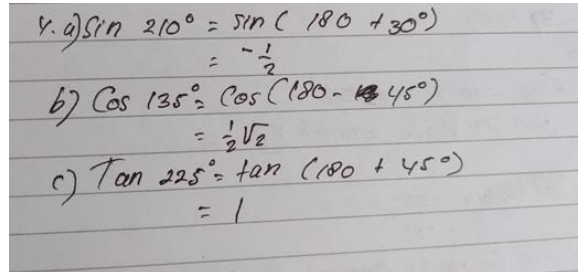 4. a) Sin 210° = sin ( 180 + 30°)
= - 1/2
b) Cos 135° = Cos (180 - 45°)
= 1/2 √2
c) Tan 225° = tan (180 + 45°)
= 1